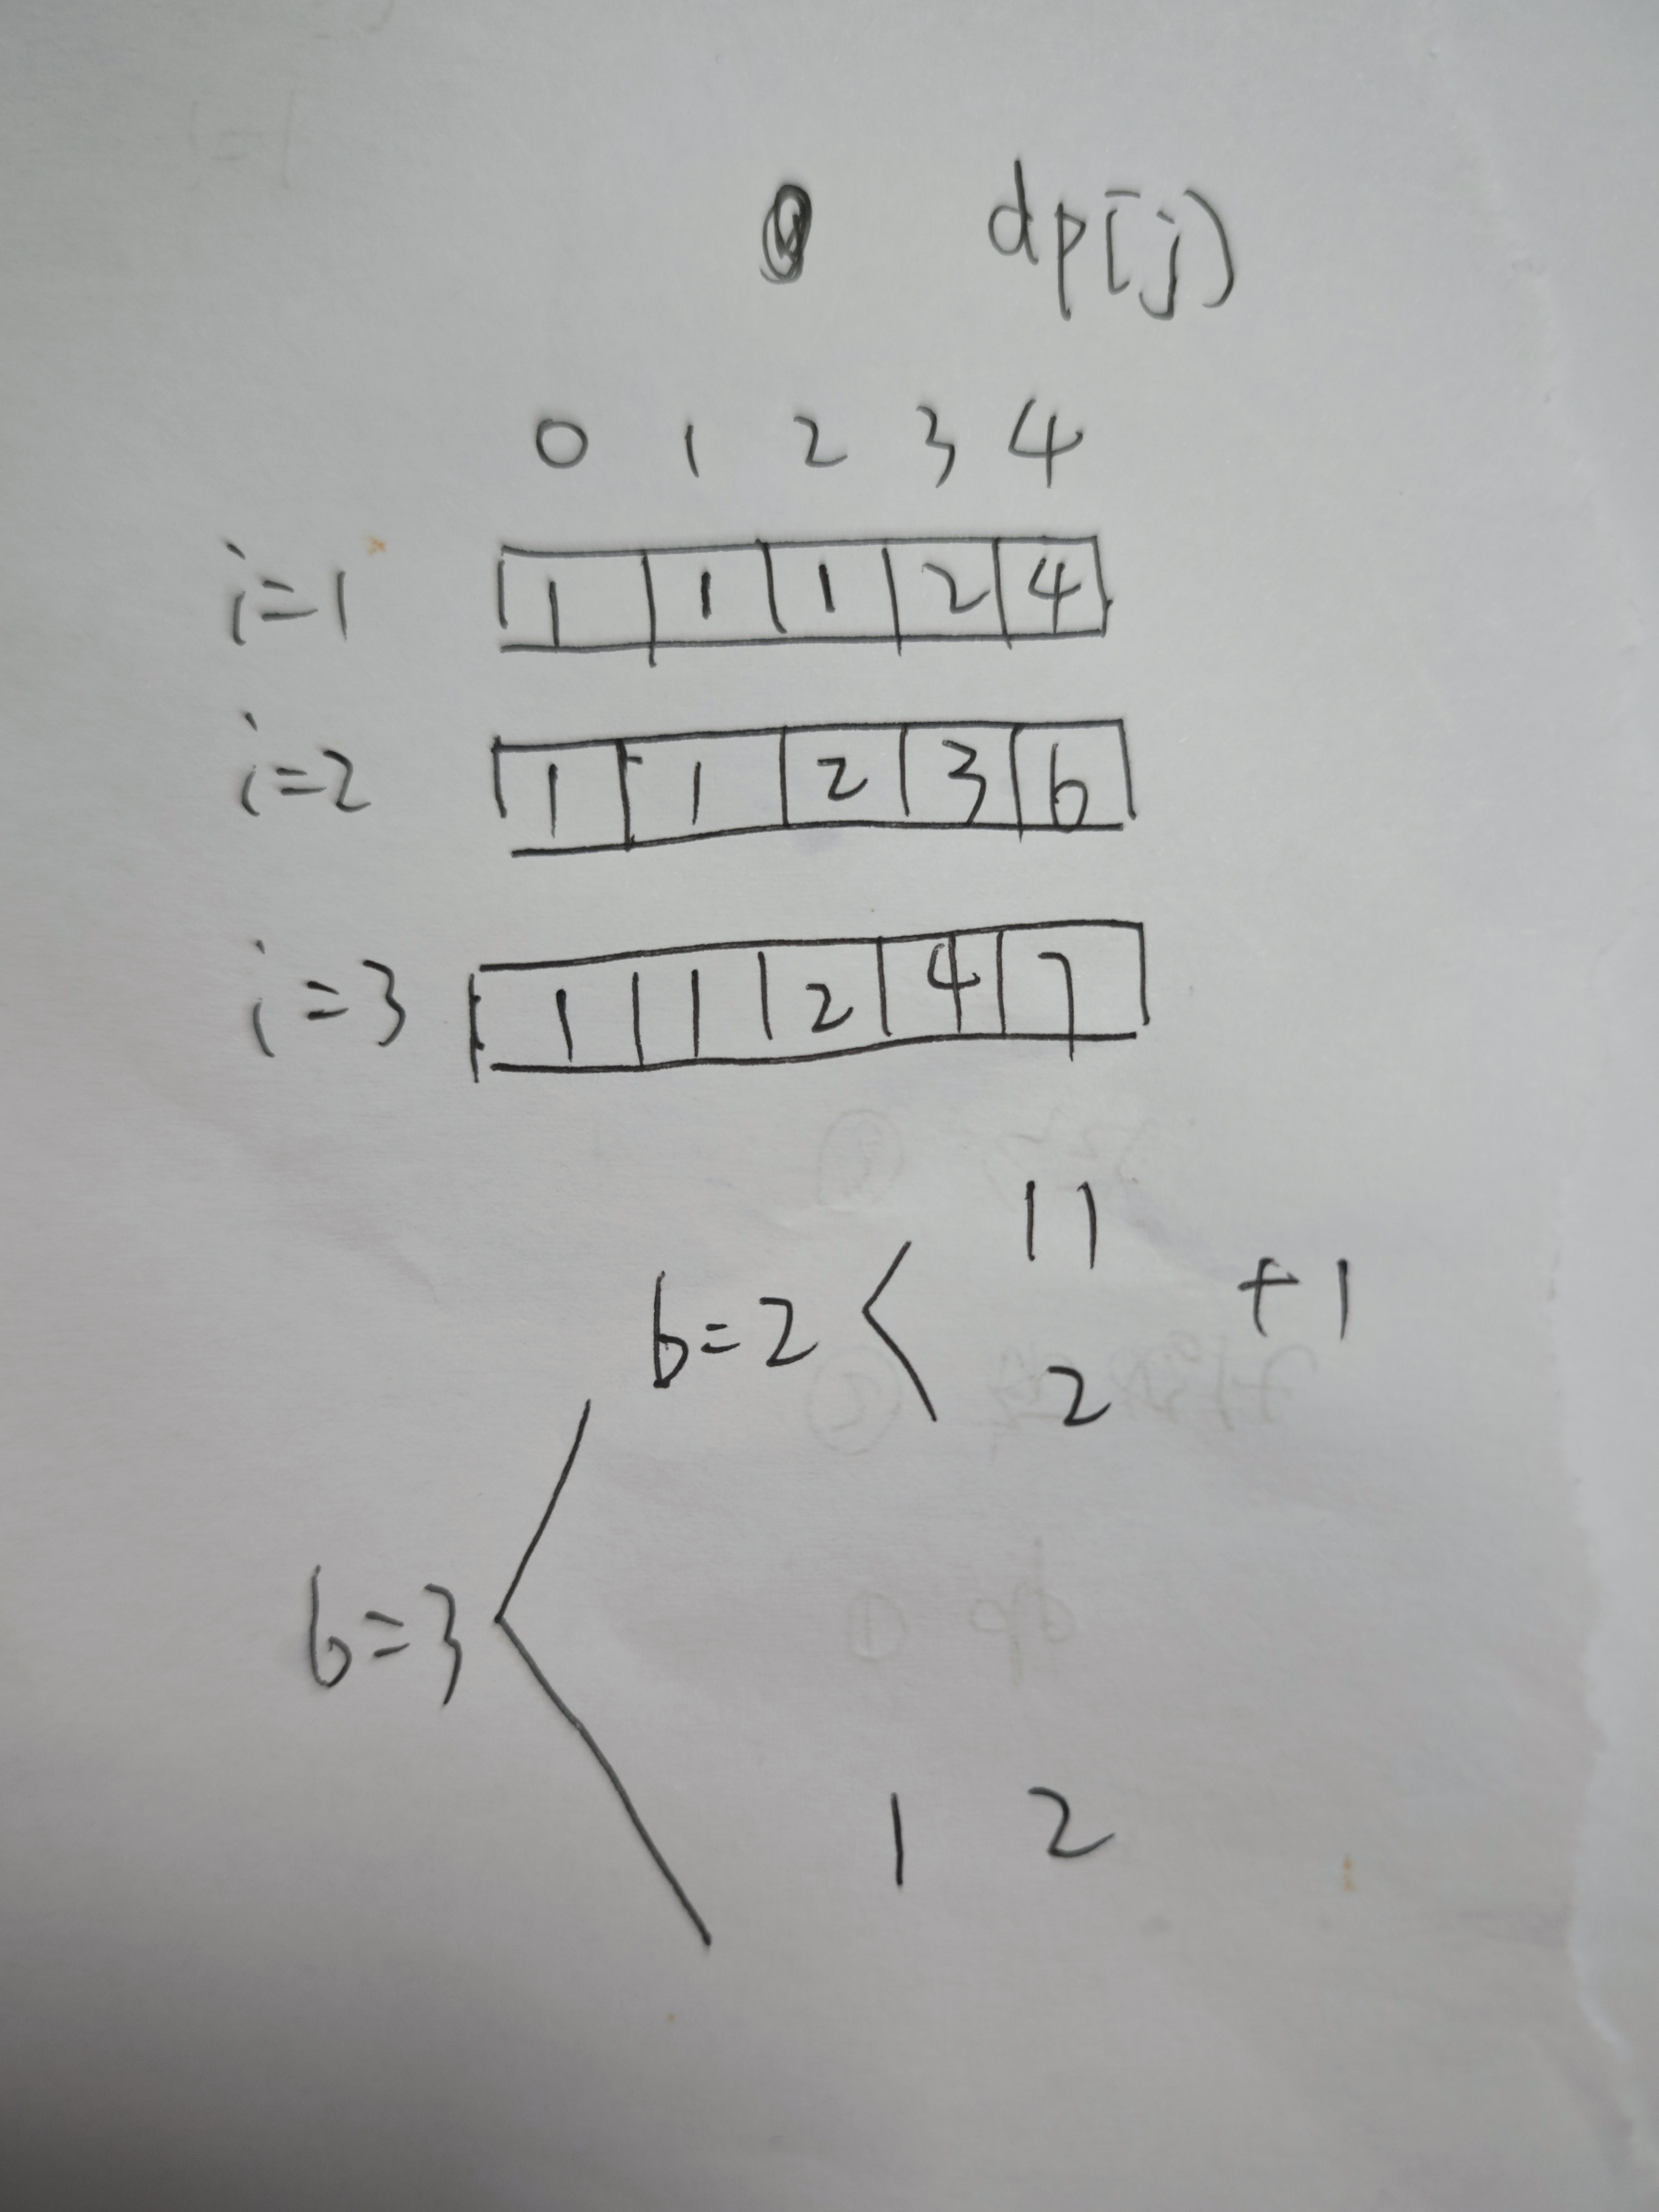 0 dp[j)
0 1 2 3 4
i=1 1 1 1 2 4
i=2 1 1 2 3 6
i=3 1 1 2 4 7
11
b=2 < +1
2
b=3 <
1 2